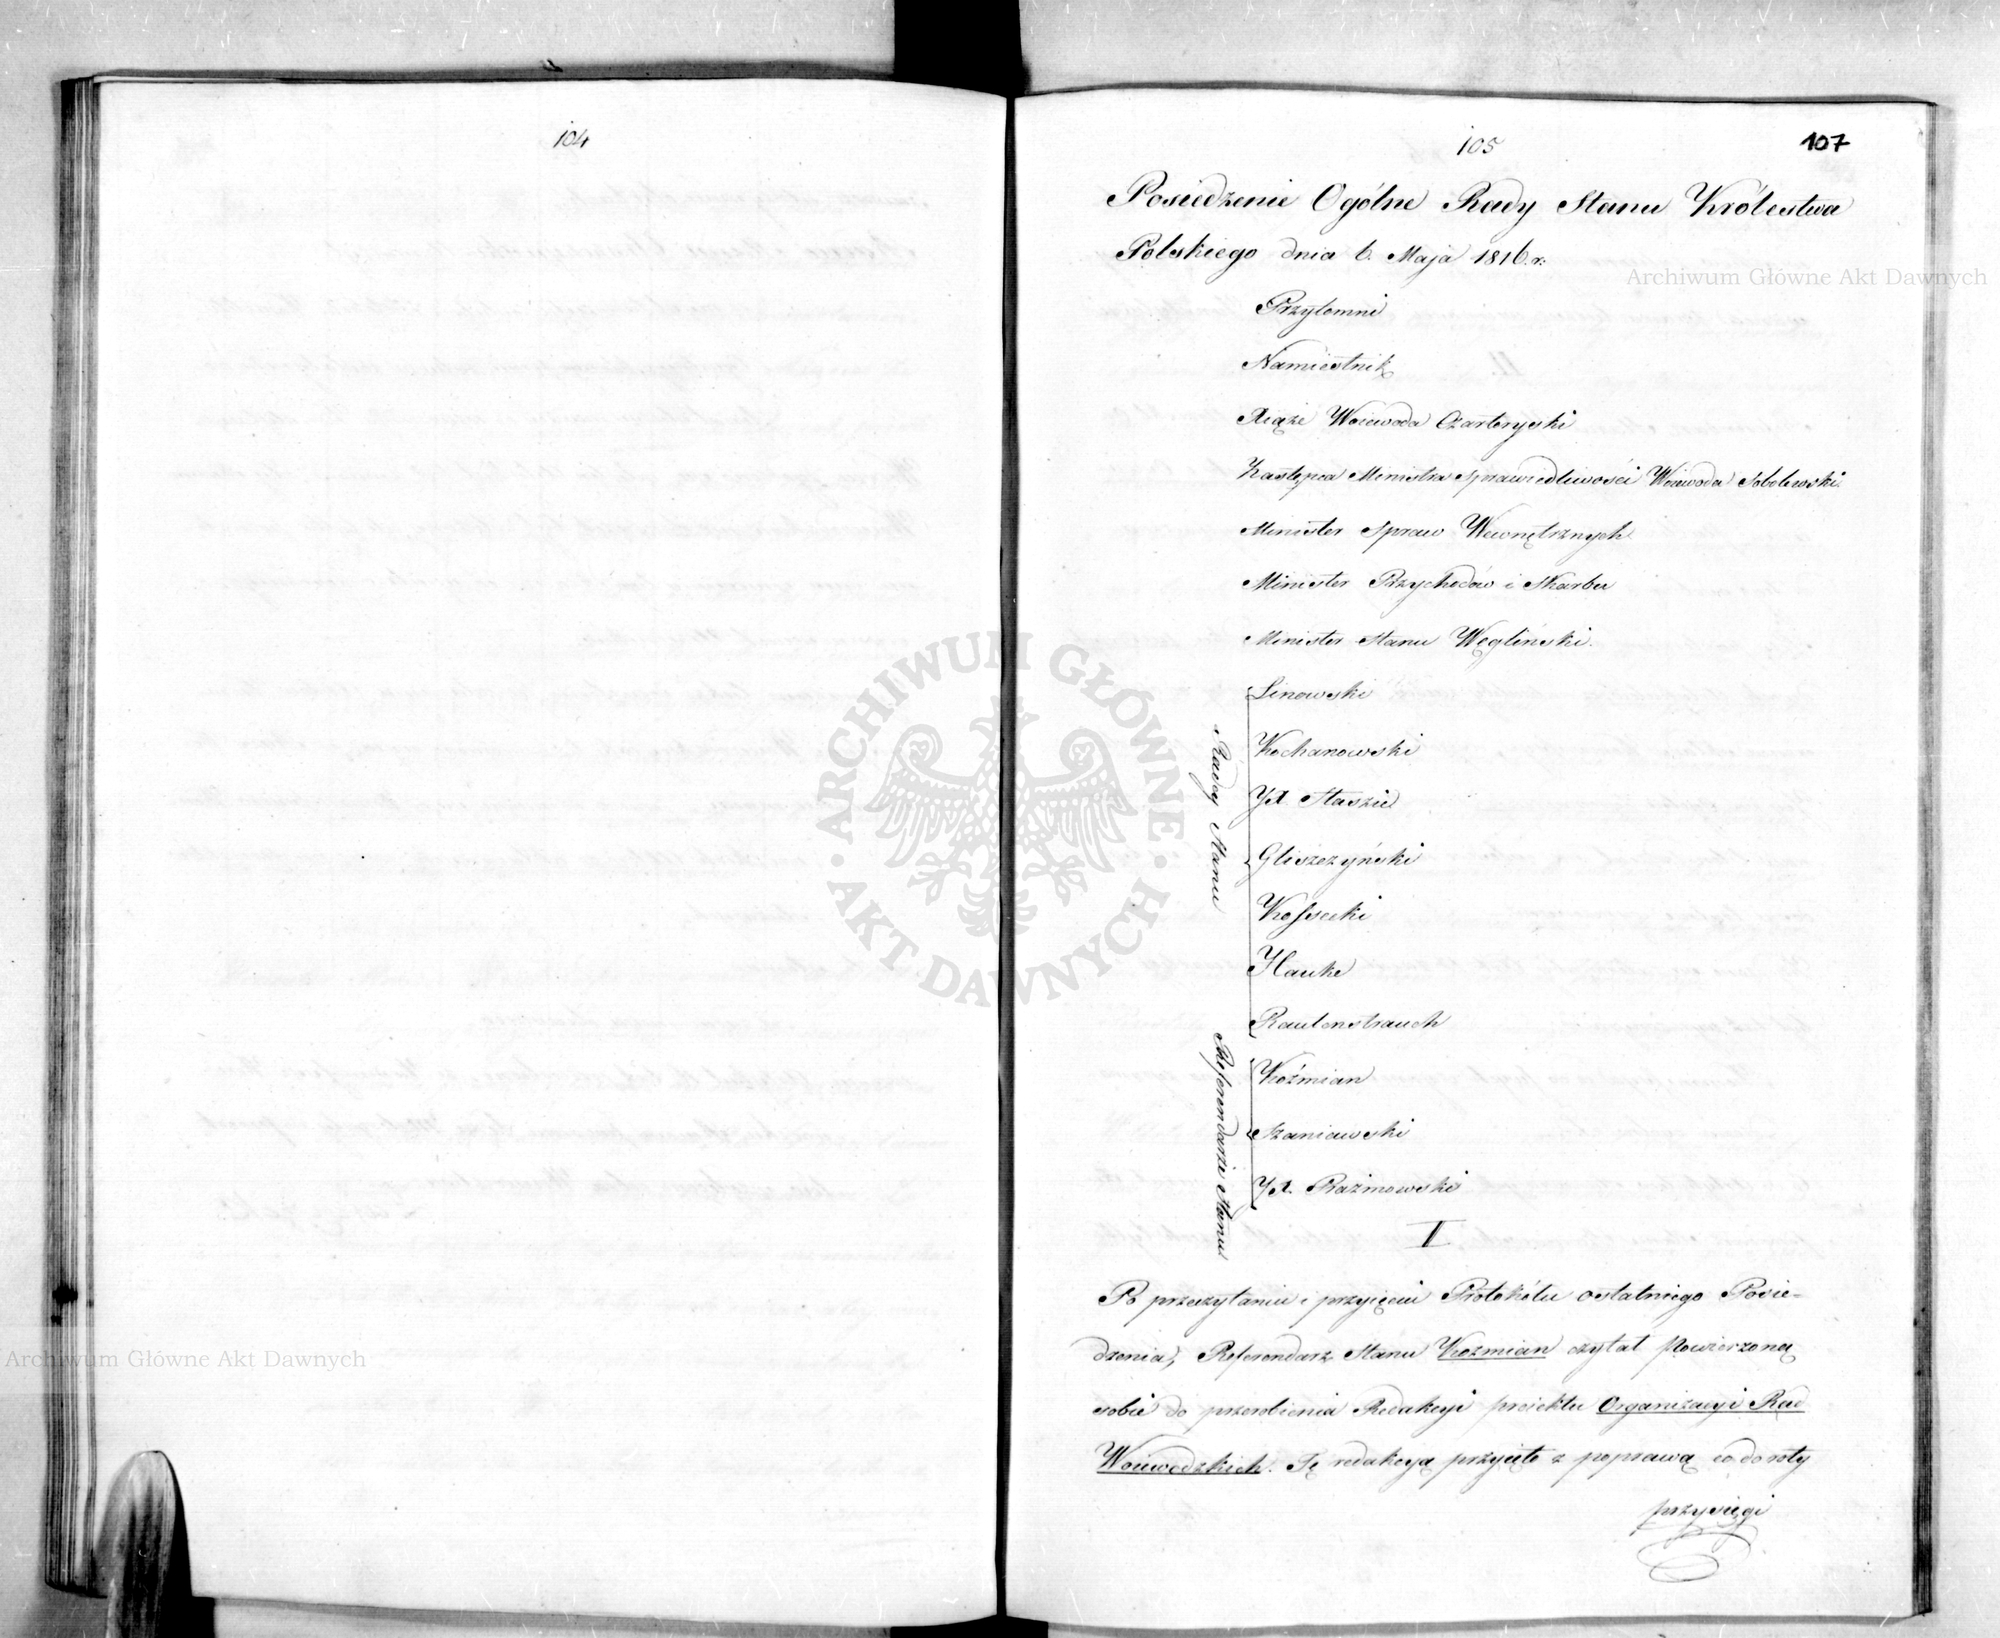 104
105
107
Posiedzenie Ogólne Rady Stanu Królestwa
Polskiego dnia 6. Maja 1816.r:
Przytomni
Namiestnik
Xiąże Woiewoda Czartoryski
Zastępca Ministra Sprawiedliwości Woiewoda Sobolewski.
Minister Spraw Wewnętrznych
Minister Przychodów i Skarbu
Minister Stanu Węgliński.
Radcy Stanu
Linowski
Kochanowski
JX. Staszic
Gliszczyński
Kossecki
Hauke
Rautenstrauch
Referendarze Stanu
Koźmian
Szaniawski
JX. Prażmowski
I
Po przeczytaniu i przyięciu Protokółu ostatniego Posie=
dzenia, Referendarz Stanu Koźmian czytał powierzoną
sobie do przerobienia Redakcyi proiektu Organizacyi Rad
Woiewódzkich. Tę redakcyą przyięto z poprawą co do roty
przysięgi
Archiwum Główne Akt Dawnych
Archiwum Główne Akt Dawnych
ARCHIWUM GŁÓWNE
AKT DAWNYCH